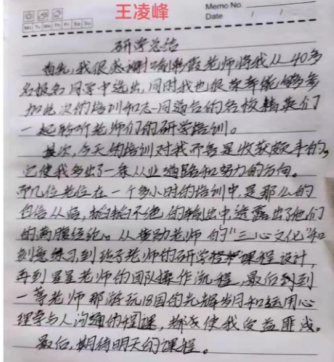 王凌峰
Memo No.
Date / /
研学总结
首先,我很感谢 老师将我从40多
名报名同学中选出,同时我也很荣幸能够参
加此次的培训和志同道合的名校精英们
一起聆听老师们的研学培训。
其次,今天的培训对我而言是收获颇丰的。
它使我多出了一条从业道路和努力的方向。
几位老师在一个多小时的培训中是那么的
自信从容,侃侃不绝的输出中透露出他们
的满腹经纶。从 老师的“三心文化”和
刻意练习,到 老师的研学 课程设计
再到 老师的团队操作流程,最后到
老师那游玩18国的光辉岁月和运用心
理学与人沟通的 课,都使我受益匪浅。
最后,期待明天的课程。